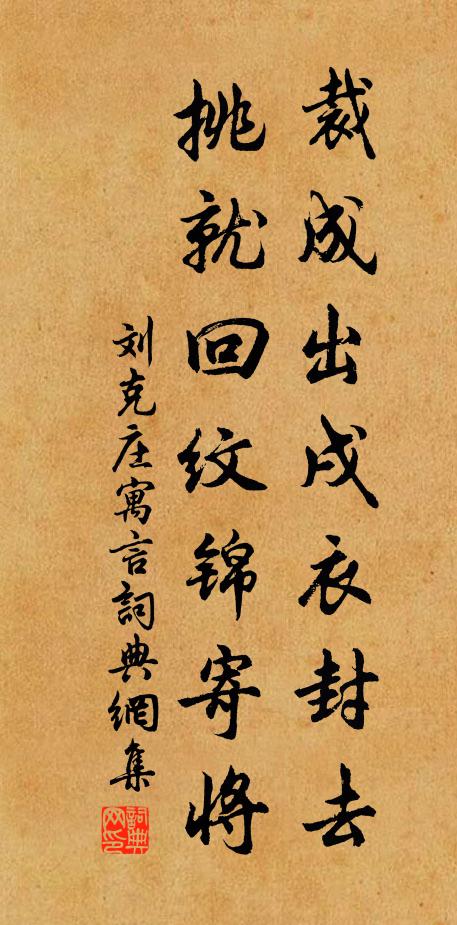 裁成出戍衣封去
挑就回纹锦寄将
刘克庄寓言詞典網集
詞典网印